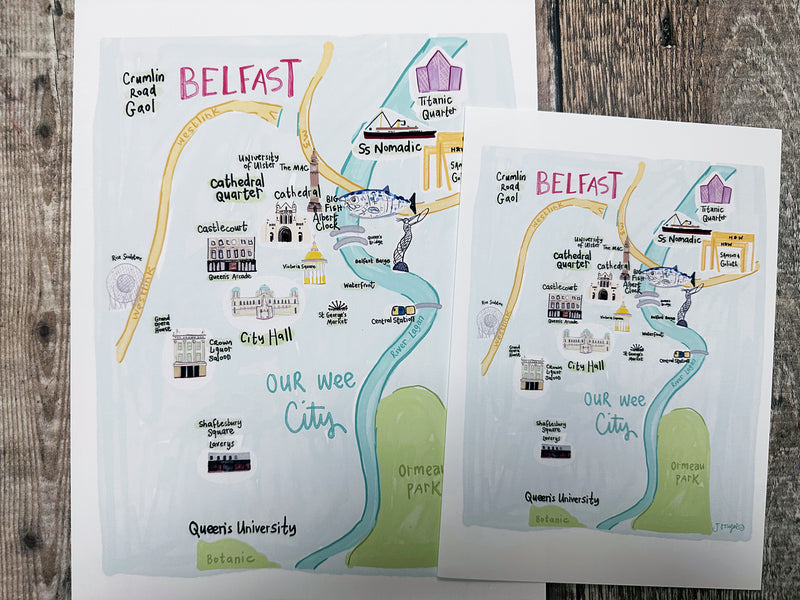 Crumlin
Road
Gaol
BELFAST
westlink
M3
Titanic
Quarter
Ss Nomadic
H&W
University
of Ulster
The MAC
Cathedral
Quarter
Cathedral
BIG
Fish
Albert
Clock
Queen's
Bridge
Castlecourt
Queen's Arcade
Victoria Square
Belfast Barge
Rise Sculpture
westlink
Waterfront
St George's
Market
Central Station
City Hall
Grand
Opera
House
Crown
Liquor
Saloon
River Lagan
OUR wee
City
Shaftesbury
Square
Laverys
Ormeau
PARK
Queen's University
Botanic
Crumlin
Road
Gaol
BELFAST
westlink
Titanic
Quarter
Ss Nomadic
H&W
H&W
Samson &
Goliath
University
of Ulster
The MAC
Cathedral
Quarter
Cathedral
BIG
Fish
Albert
Clock
Castlecourt
Queen's Arcade
Victoria Square
Belfast Barge
Rise Sculpture
westlink
Waterfront
St George's
Market
Central Station
City Hall
Grand
Opera
House
Crown
Liquor
Saloon
River Lagan
OUR wee
City
Shaftesbury
Square
Laverys
Ormeau
PARK
Queen's University
Botanic